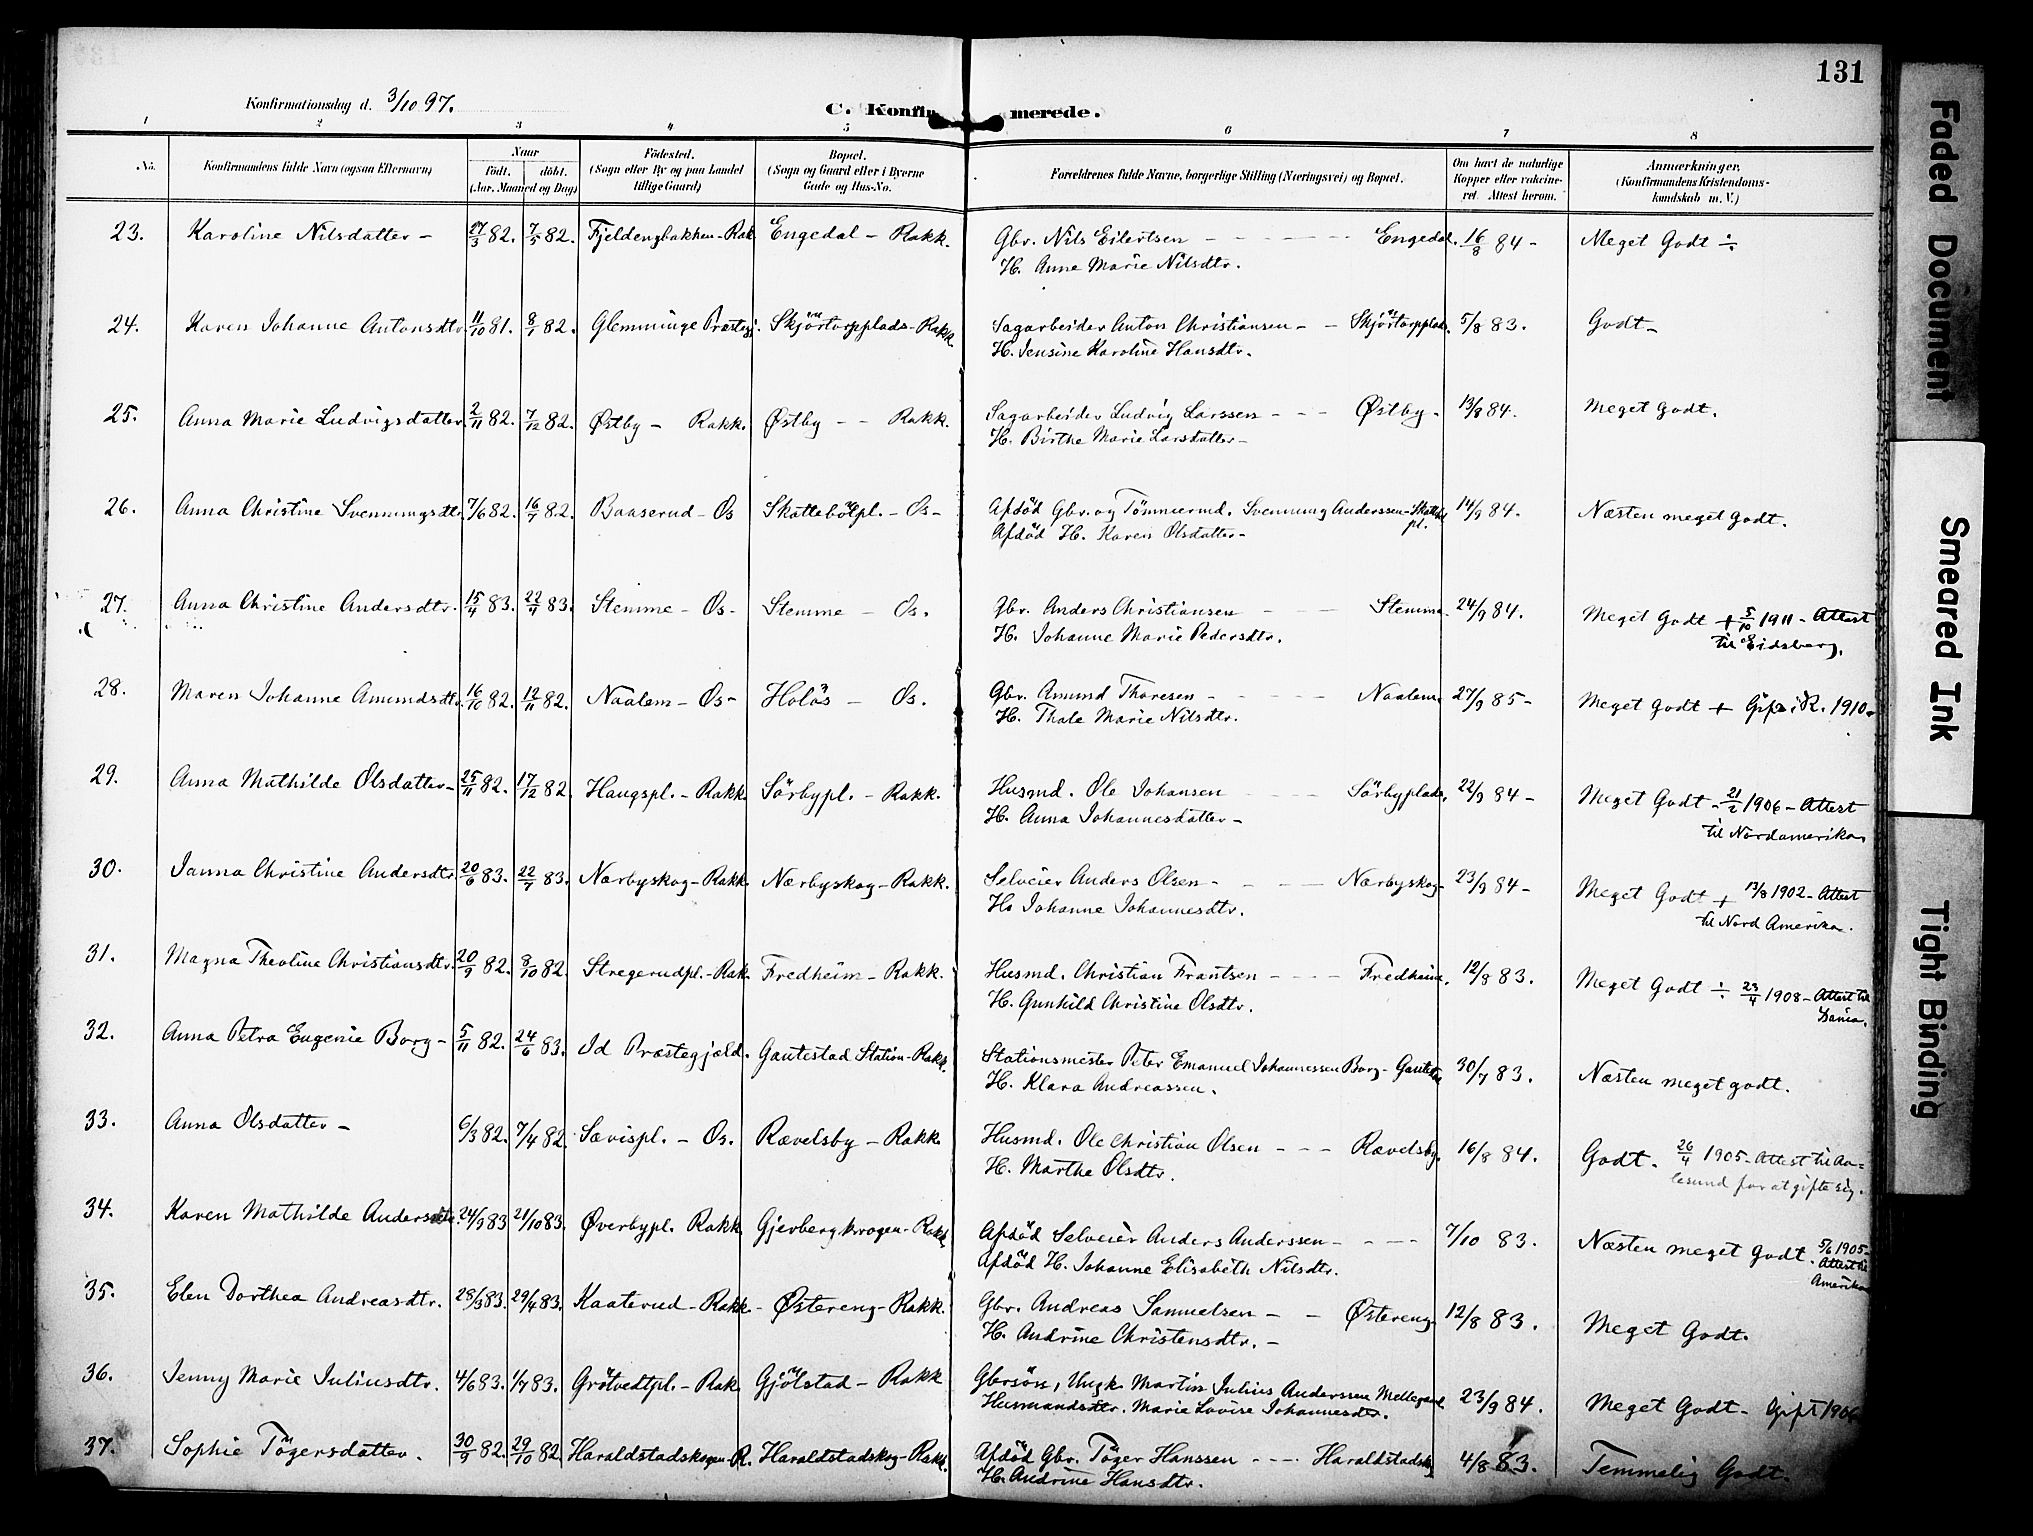 131
Konfirmationsdag d. 3/10 97.
C. Konfir merede.
1 2 3 4 5 6 7 8
No. Konfirmandens fulde Navn (ogsaa Efternavn) Naar født. døbt. (Aar, Maaned og Dag) Fødested. (Sogn eller By og paa Landet tillige Gaard) Bopæl. (Sogn og Gaard eller i Byerne Gade og Hus-No. Forældrenes fulde Navne, borgerlige Stilling (Næringsvei) og Bopæl. Om havt de naturlige Kopper eller vakcineret. Attest herom. Anmærkninger. (Konfirmandens Kristendomskundskab m. V.)
23. Karoline Nilsdatter – 27/3 82. 7/5 82. Fjeldengbakken – Rak Engedal – Rakk. Gbr. Nils Eilertsen – – – Engedal. 16/8 84 – Meget Godt ÷
H. Anne Marie Nilsdtr.
24. Karen Johanne Antonsdtr. 11/10 81. 8/1 82. Glemminge Præstegj. Skjörtorpplads – Rakk. Sagarbeider Anton Christiansen – – Skjörtorpplads. 5/8 83. Godt –
H. Jensine Karoline Hansdtr.
25. Anna Marie Ludvigsdatter 2/11 82. 7/12 82. Østby – Rakk. Østby – – Rakk. Sagarbeider Ludvig Larssen – – – Østby – 13/8 84. Meget godt.
H. Birthe Marie Larsdatter –
26. Anna Christine Svenningsdtr. 7/6 82. 16/7 82. Baaserud – Os Skattebölpl. – Os – Afdöd Gbr. og Tömmermd. Svenning Anderssen – Skatteb. pl. 14/9 84. Næsten meget godt.
Afdöd H. Karen Olsdatter –
27. Anna Christine Andersdtr. 15/4 83. 22/4 83. Stemme – Os – Stemme – Os. Gbr. Anders Christiansen – – – Stemme 24/9 84. Meget Godt + 5/10 1911 – Attest
H. Johanne Marie Pedersdtr. til Eidsberg.
28. Maren Johanne Amundsdtr. 16/10 82. 12/11 82. Naalem – Os – Holös – Os. Gbr. Amund Thoresen – – – Naalem 27/9 85 – Meget godt + Gift i R. 1910.
H. Thale Marie Nilsdtr.
29. Anna Mathilde Olsdatter – 25/11 82. 17/12 82. Haugspl. – Rakk. Sörbypl. – Rakk. Husmd. Ole Johansen – – Sörbyplads. 22/9 84 – Meget Godt – 21/2 1906 – Attest
H. Anna Johannesdatter – til Nordamerika.
30. Janna Christine Andersdtr. 20/6 83. 22/7 83. Nærbyskog – Rakk. Nærbyskog – Rakk. Selveier Anders Olsen – – – – Nærbyskog 23/9 84 – Meget Godt + 13/8 1902 – Attest
H. Johanne Johannesdtr. til Nord Amerika.
31. Magna Theoline Christiansdtr. 20/9 82. 8/10 82. Stregerudpl. – Rak. Fredheim – Rakk. Husmd. Christian Frantsen – – – Fredheim. 12/8 83. Meget Godt ÷ 23/4 1908 – Attest til
H. Gunhild Christine Olsdtr.
32. Anna Petra Eugenie Borg – 5/11 82. 24/6 83. Id Præstegjæld. Gautestad Station – Rakk. Stationsmester Peter Emanuel Johannessen Borg – 30/7 83. Næsten meget godt.
H. Klara Andreassen.
33. Anna Olsdatter – 6/3 82. 7/4 82. Sævispl. – Os. Rævelsby – Rakk Husmd. Ole Christian Olsen – – – Rævelsby. 16/8 84. Godt. 26/4 1905 – Attest til Aa=
H. Marthe Olsdtr. lesund for at gifte sig.
34. Karen Mathilde Andersdtr. 24/9 83 21/10 83. Øverbypl. Rakk Gjerbergkrogen – Rakk. Afdöd Selveier Anders Anderssen – – – 7/10 83. Næsten meget godt. 5/6 1905 –
Afdöd H. Johanne Elisabeth Nilsdtr. Attest til Amerika
35. Elen Dorthea Andreasdtr. 28/3 83. 29/4 83. Kaaterud – Rakk – Østereng – Rakk. Gbr. Andreas Samuelsen – – Østereng 12/8 83. Meget Godt.
H. Andrine Christensdtr. –
36. Jenny Marie Juliusdtr. 4/6 83. 1/7 83. Grötvedtpl. – Rak Gjölstad – Rakk Gbrsön, Ungk. Martin Julius Anderssen 23/9 84. Meget Godt – Gift 1906
Husmandsdtr. Marie Lovise Johannesdtr.
37. Sophie Tögersdatter. 30/9 82. 29/10 82 Haraldstadskogen – R. Haraldstadskog – Rakk. Afdöd Gbr. Töger Hanssen – – – Haraldstadskog 4/8 83. Temmelig Godt.
H. Andrine Hansdtr.
Faded Document
Smeared Ink
Tight Binding